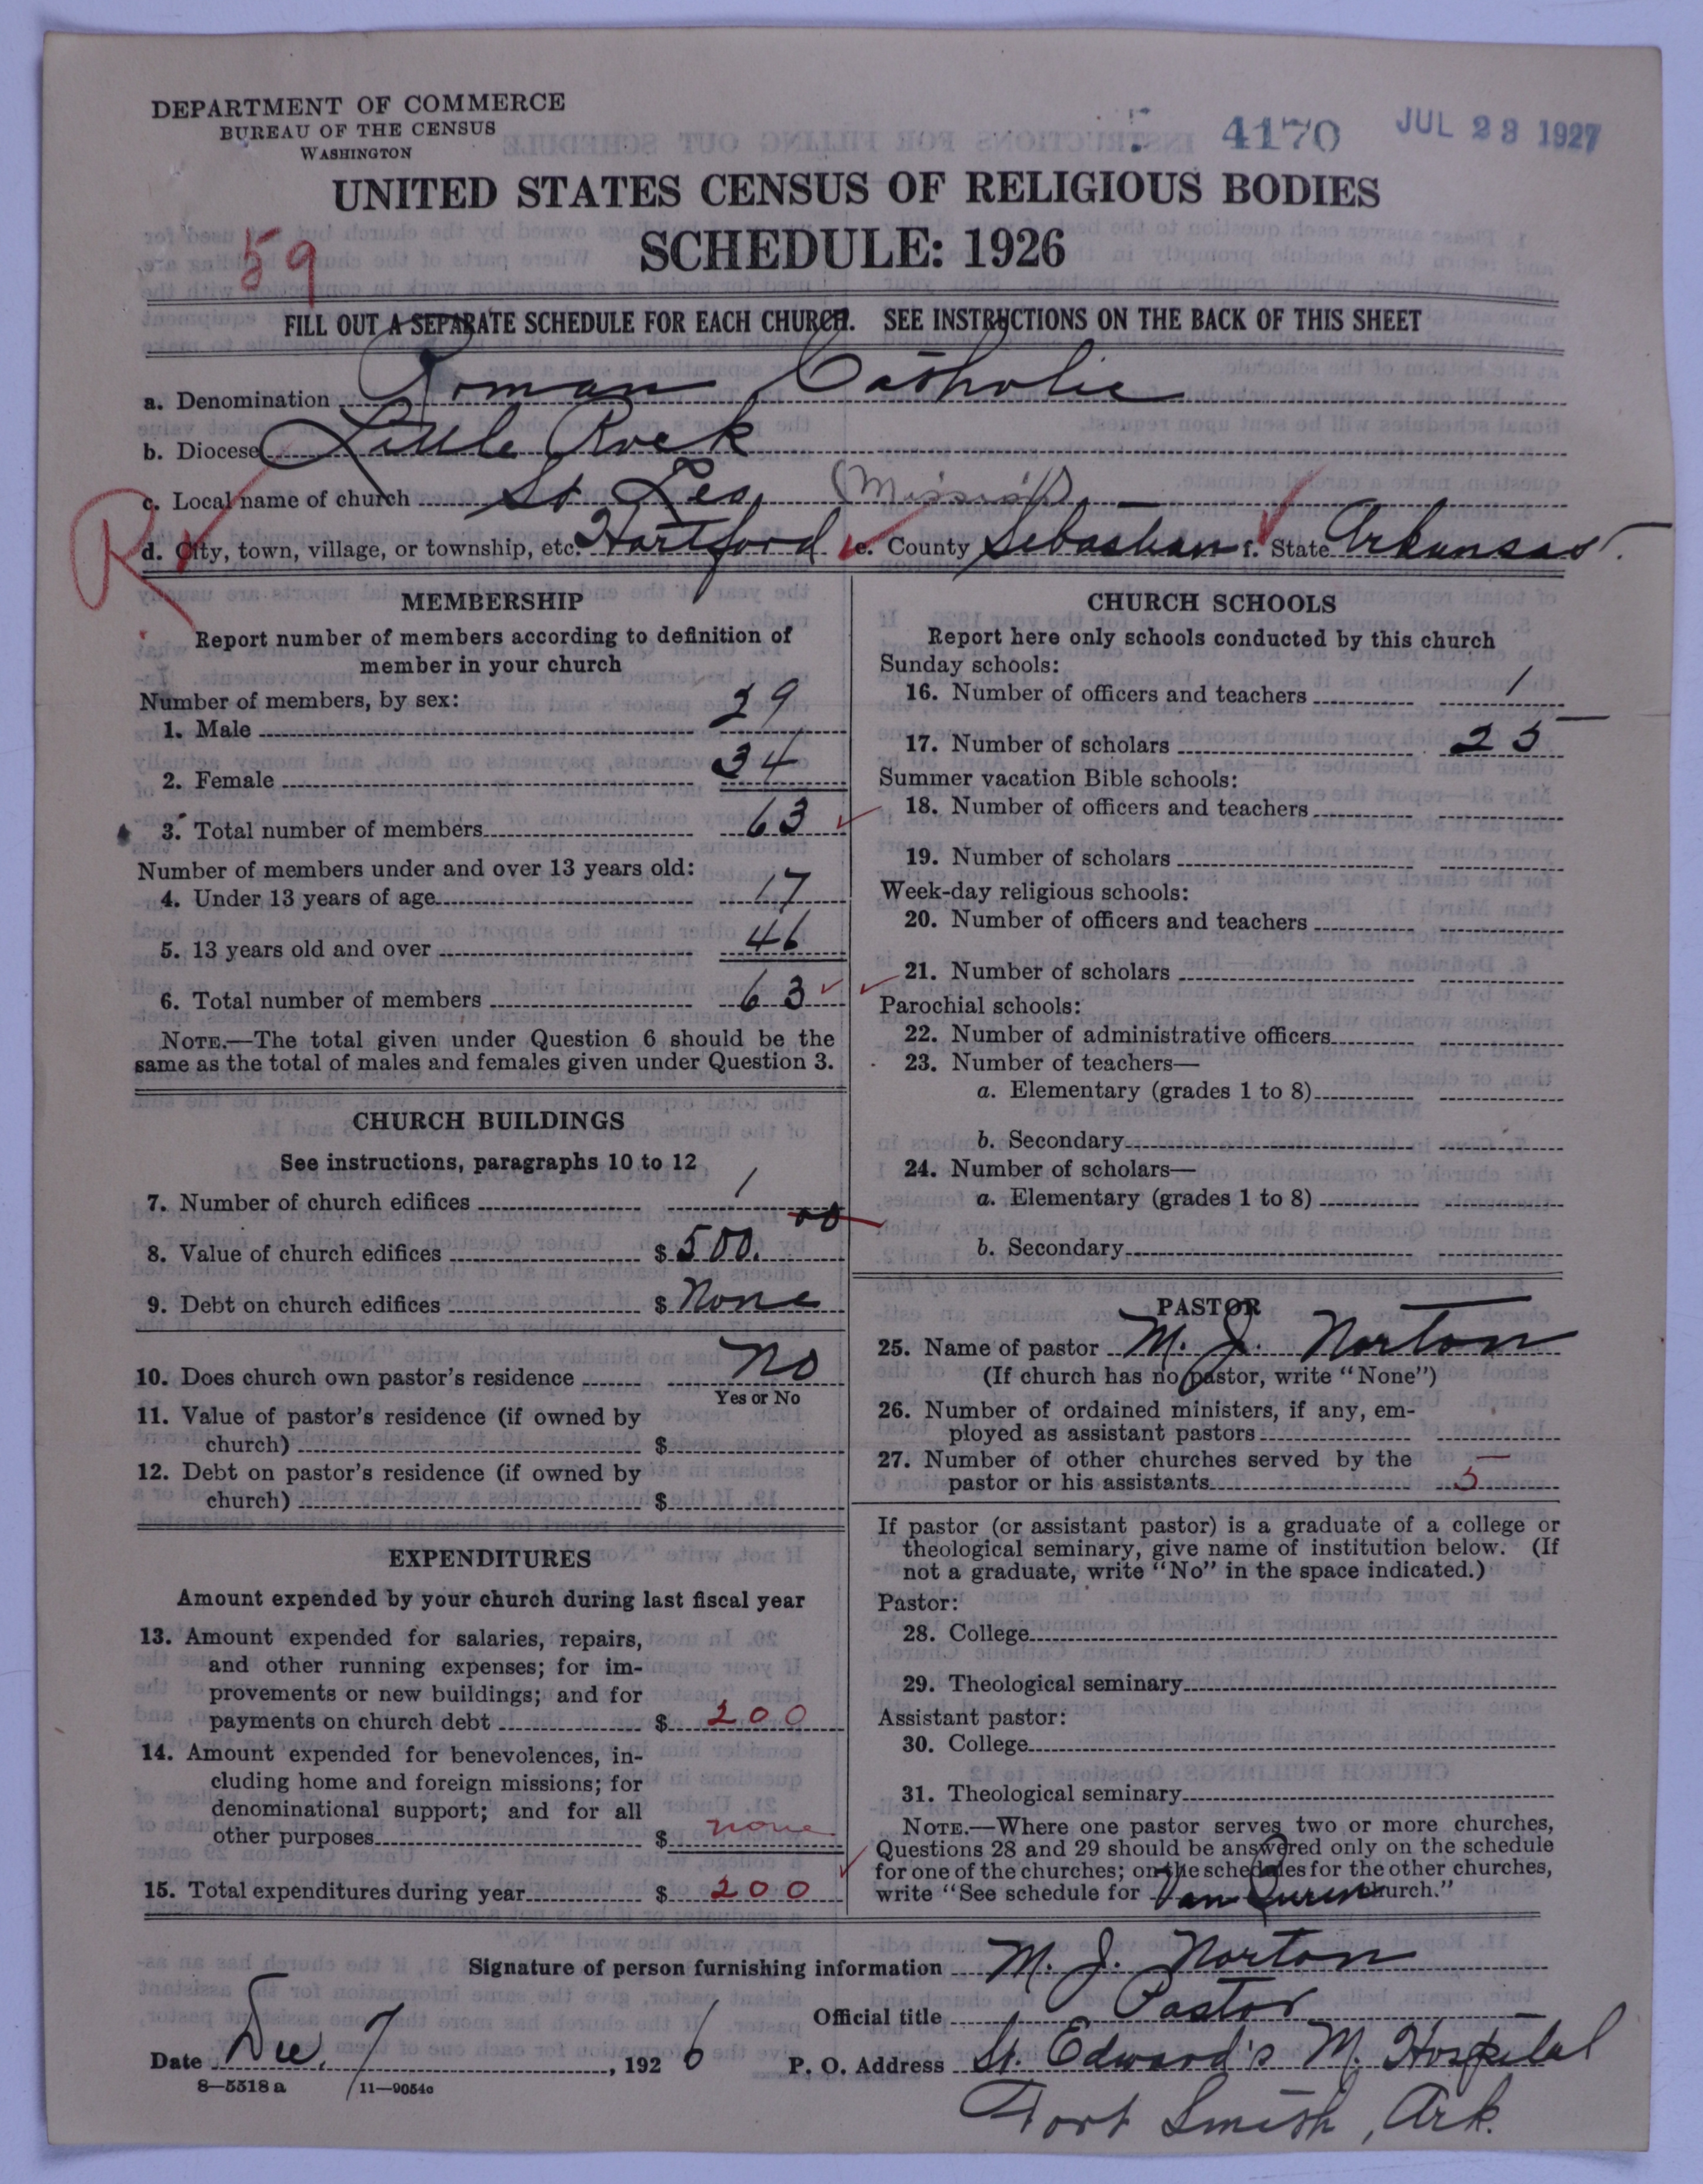 DEPARTMENT OF COMMERCE
BUREAU OF THE CENSUS
WASHINGTON
4170 JUL 23 1927
UNITED STATES CENSUS OF RELIGIOUS BODIES
SCHEDULE: 1926
59
FILL OUT A SEPARATE SCHEDULE FOR EACH CHURCH. SEE INSTRUCTIONS ON THE BACK OF THIS SHEET
a. Denomination Roman Catholic
b. Diocese Little Rock
c. Local name of church St. Leo, (Mission)
R
d. City, town, village, or township, etc. Hartford e. County Sebastian f. State Arkansas.
MEMBERSHIP
Report number of members according to definition of
member in your church
Number of members, by sex:
1. Male 29
2. Female 34
3. Total number of members 63
Number of members under and over 13 years old:
4. Under 13 years of age 17
5. 13 years old and over 46
6. Total number of members 63
NOTE.—The total given under Question 6 should be the
same as the total of males and females given under Question 3.
CHURCH BUILDINGS
See instructions, paragraphs 10 to 12
7. Number of church edifices 1
8. Value of church edifices $ 500.00
9. Debt on church edifices $ None
10. Does church own pastor's residence No
Yes or No
11. Value of pastor's residence (if owned by
church) $
12. Debt on pastor's residence (if owned by
church) $
EXPENDITURES
Amount expended by your church during last fiscal year
13. Amount expended for salaries, repairs,
and other running expenses; for im-
provements or new buildings; and for
payments on church debt $ 200
14. Amount expended for benevolences, in-
cluding home and foreign missions; for
denominational support; and for all
other purposes $ none
15. Total expenditures during year $ 200
CHURCH SCHOOLS
Report here only schools conducted by this church
Sunday schools:
16. Number of officers and teachers 1
17. Number of scholars 25
Summer vacation Bible schools:
18. Number of officers and teachers
19. Number of scholars
Week-day religious schools:
20. Number of officers and teachers
21. Number of scholars
Parochial schools:
22. Number of administrative officers
23. Number of teachers—
a. Elementary (grades 1 to 8)
b. Secondary
24. Number of scholars—
a. Elementary (grades 1 to 8)
b. Secondary
PASTOR
25. Name of pastor M. J. Norton
(If church has no pastor, write "None")
26. Number of ordained ministers, if any, em-
ployed as assistant pastors
27. Number of other churches served by the
pastor or his assistants 5
If pastor (or assistant pastor) is a graduate of a college or
theological seminary, give name of institution below. (If
not a graduate, write "No" in the space indicated.)
Pastor:
28. College
29. Theological seminary
Assistant pastor:
30. College
31. Theological seminary
NOTE.—Where one pastor serves two or more churches,
Questions 28 and 29 should be answered only on the schedule
for one of the churches; on the schedules for the other churches,
write "See schedule for Van Buren church."
Signature of person furnishing information M. J. Norton
Official title Pastor
Date Dec. 7, 1926 P. O. Address St. Edward's M. Hospital
8—5518a 11—9054a
Fort Smith, Ark.